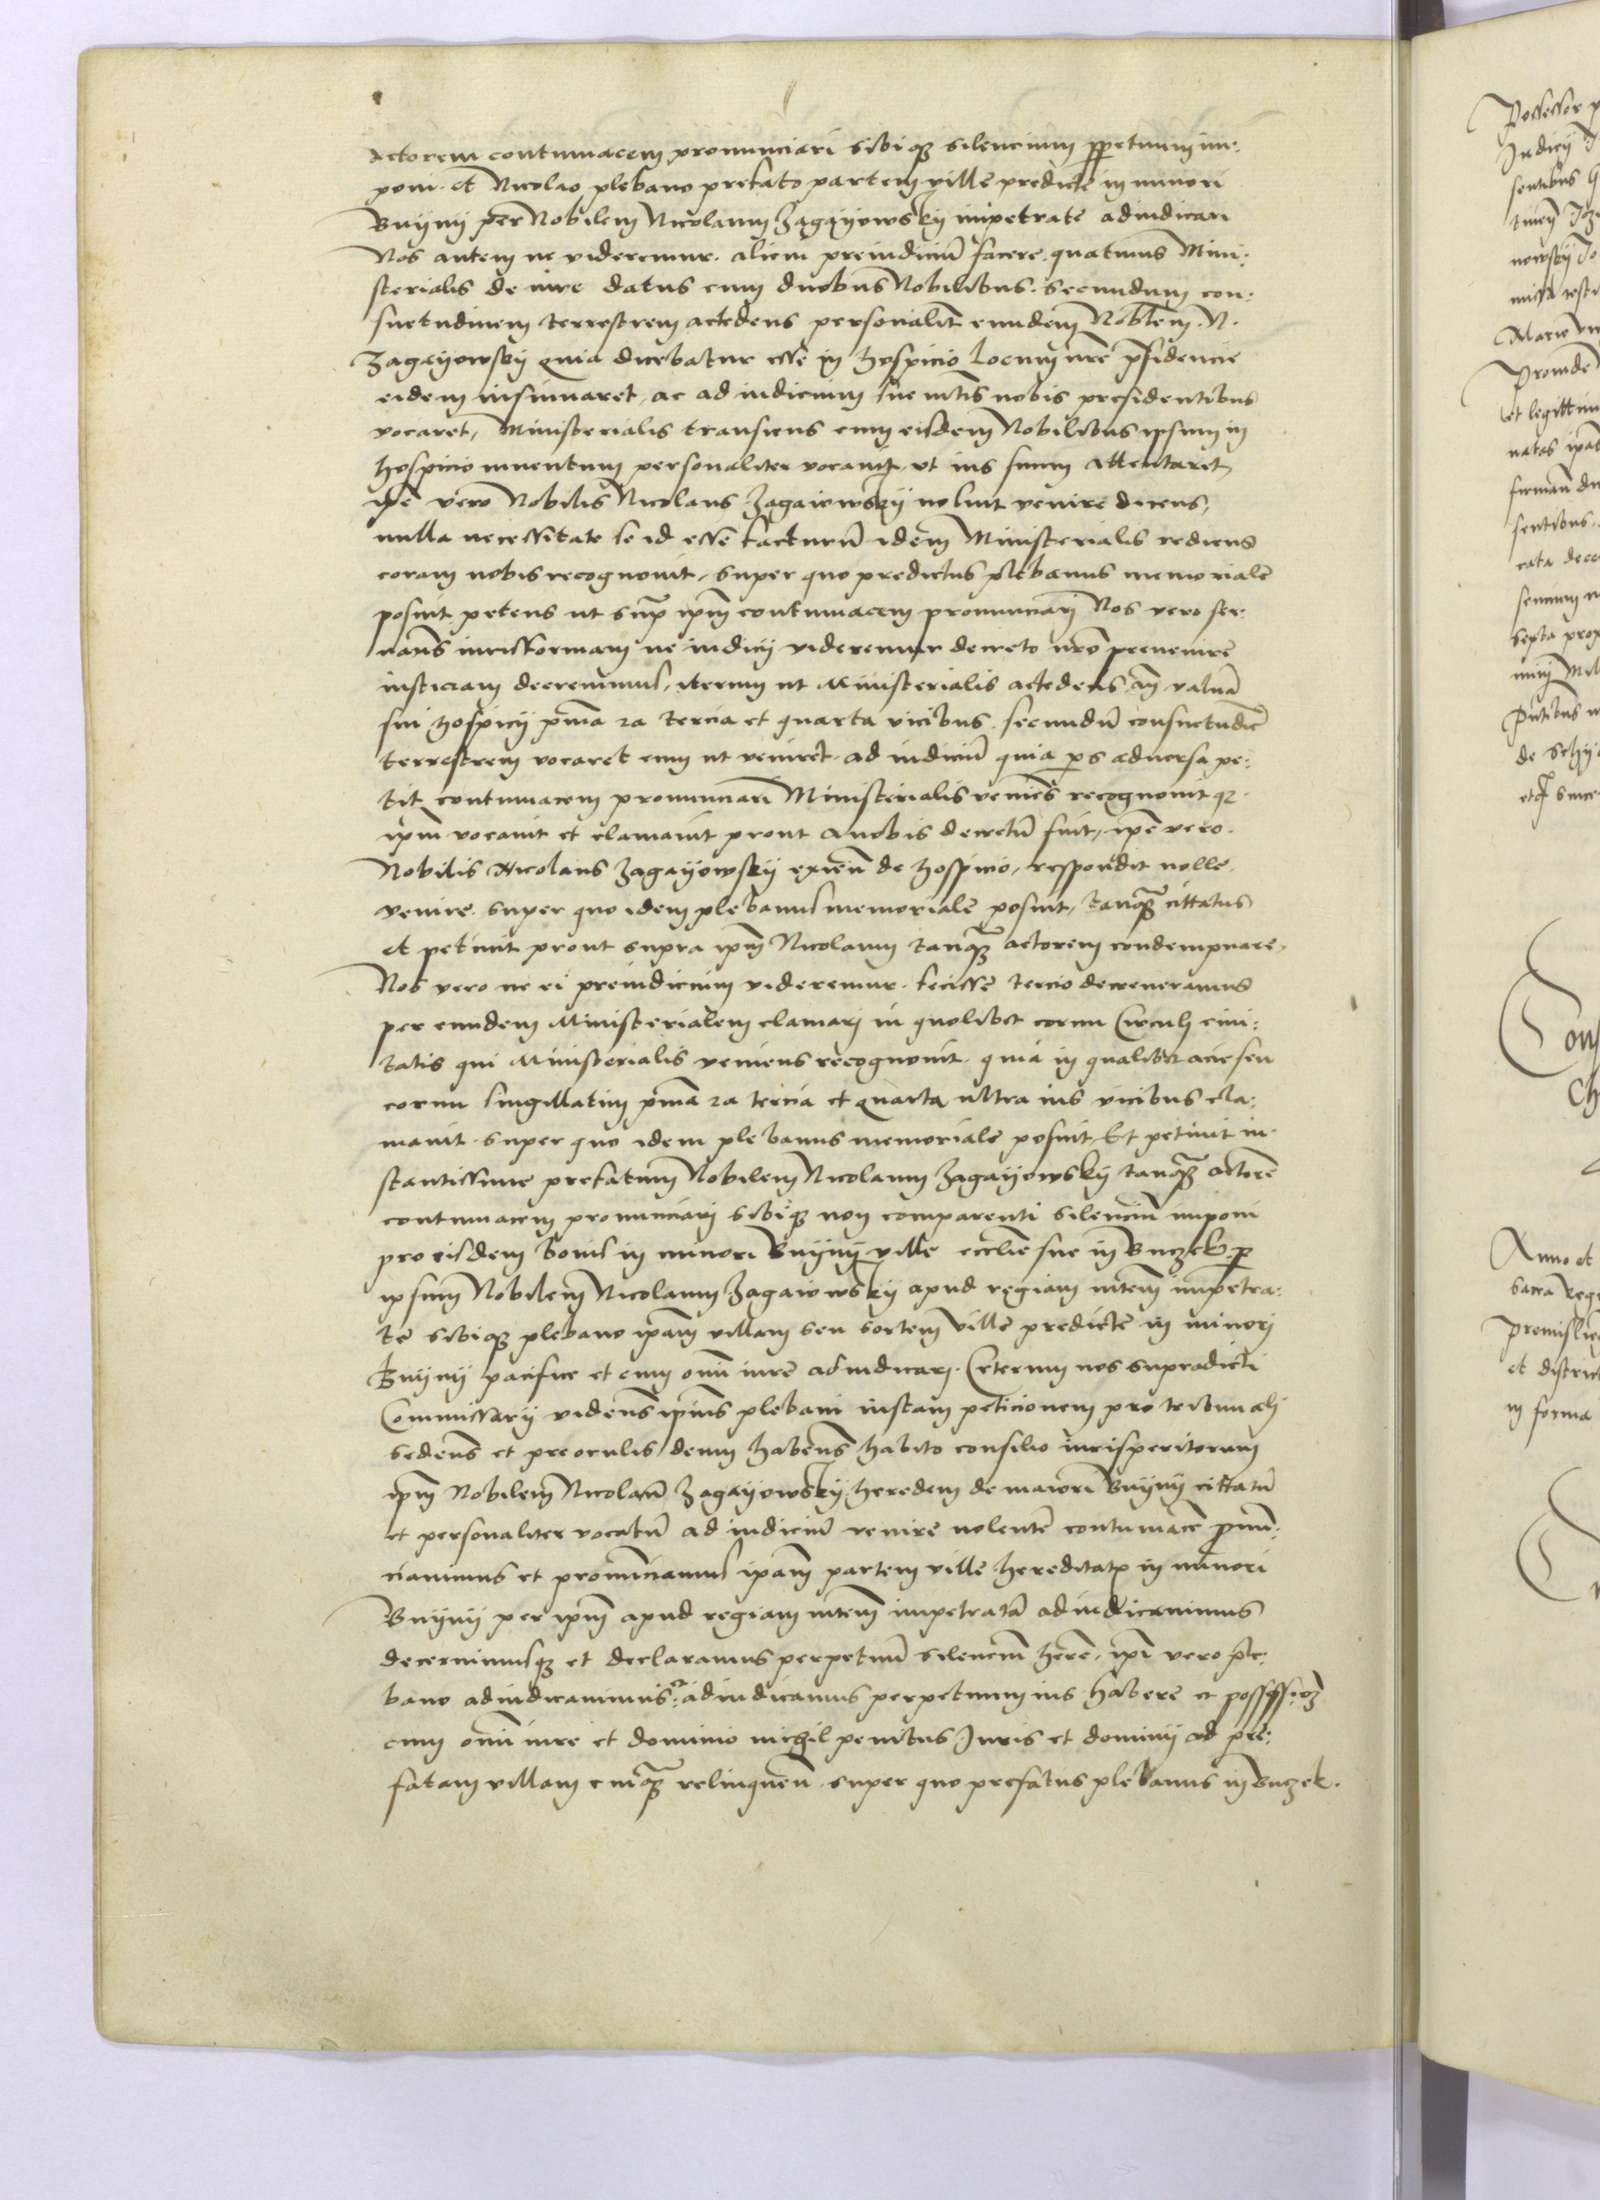 actorem contumacem pronunciari sibiqȝ silencium ꝑpetuum im:
poni. et Nicolao plebano prefato partem ville predicte in minori
Buÿnÿ per Nobilem Nicolaum Zagaÿowskÿ impetrate adiudicari
Nos autem ne videremur. alicui preiudiciū facere. quatinus Mini:
sterialis de iure datus cum duobus Nobilibus. secundum con:
suetudinem terrestrem accedens personalit̄ eundem Nobłem. N.
Zagaÿowskÿ quia dicebatur esse in hospicio locum nr̄e p̄sidencie
eidem insinuaret, ac ad iudicium sue mt̄is nobis presidentibus
vocaret, Ministerialis transiens cum eisdem Nobilibus ipsum in
hospicio inuentum personaliter vocauit, vt ius suum attentaret,
ip̄e vero Nobilis Nicolaus Zagaiowskÿ noluit venire dicens,
nulla necessitate se id esse facturū idem Ministerialis rediens
coram nobis recognouit, super quo predictus plebanus memoriale
posuit petens ut sup̄ ip̄m contumacem pronunciari Nos vero ser:
uan̄s iurisformam ne iudicij videremur decreto nr̄o preuenire
iusticiam decreuimus, iterum ut Ministerialis accedens añ valuā
sui hospicij p̄ma 2a tercia et quarta vicibus secundū consuetudiē
terrestrem vocaret eum ut veniret. ad iudiciū quia ꝑs aduersa pe:
tit contumacem pronunciari Ministerialis venien̄s recognouit qȝ
ip̄m vocauit et clamauit prout a nobis decretū fuit, ip̄e vero.
Nobilis Nicolaus Zagaÿowskÿ exien̄ de hospicio, respondit nolle.
venire. super quo idem plebanus memoriale posuit, tanqȝ cittatus
et petiuit prout supra ip̄m Nicolaum tanqȝ actorem condempnare,
Nos vero ne ei preiudicium videremur. fecisse tercio decreueramus
per eundem Ministerialem clamari in quolibet cornu Circuli ciui:
tatis qui Ministerialis veniens recognouit. quia in qualibet acie seu
cornu singillatim p̄ma 2a tercia et quarta ultra ius vicibus cla:
mauit. super quo idem plebanus memoriale posuit, Et petiuit in:
stantissime prefatum Nobilem Nicolaum Zagaÿowskÿ tanqȝ actorē
contumacem pronunciari sibiqȝ non comparenti silenciū imponi
pro eisdem bonis in minori Buÿnÿ ville eccłie sue in Buczek. ꝑ
ipsum Nobilem Nicolaum Zagaiowskÿ apud regiam mt̄em impetra:
te sibiqȝ plebano ip̄am villam seu sortem ville predicte in minori
Buÿnÿ pacifice et cum om̄i iure adiudicari. Ceterum nos supradicti
Commissarij viden̄s ip̄ius plebani iustam peticionem pro tribunali
seden̄s et preoculis deum haben̄s habito consilio iurisperitorum
ip̄m Nobilem Nicolaū Zagaÿowskÿ heredem de maiori Buÿnÿ cittatū
et personaliter vocatū ad iudiciū venire nolentē contumacē ꝓnū:
ciauimus et pronunciamus ip̄am partem ville hereditatis in minori
Buÿnÿ per ip̄m apud regiam mt̄em impetratā adiudicauimus
decernimusqȝ et declaramus perpetuū silenciū h̄ere, ip̄i vero ple:
bano adiudicauimus: et adiudicamus perpetuum ius habere et possessioȝ
cum om̄i iure et dominio nichil penitus Juris et dominij ad pre:
fatam villam cuiqȝ relinquen̄. super quo prefatus plebanus in Buczek.